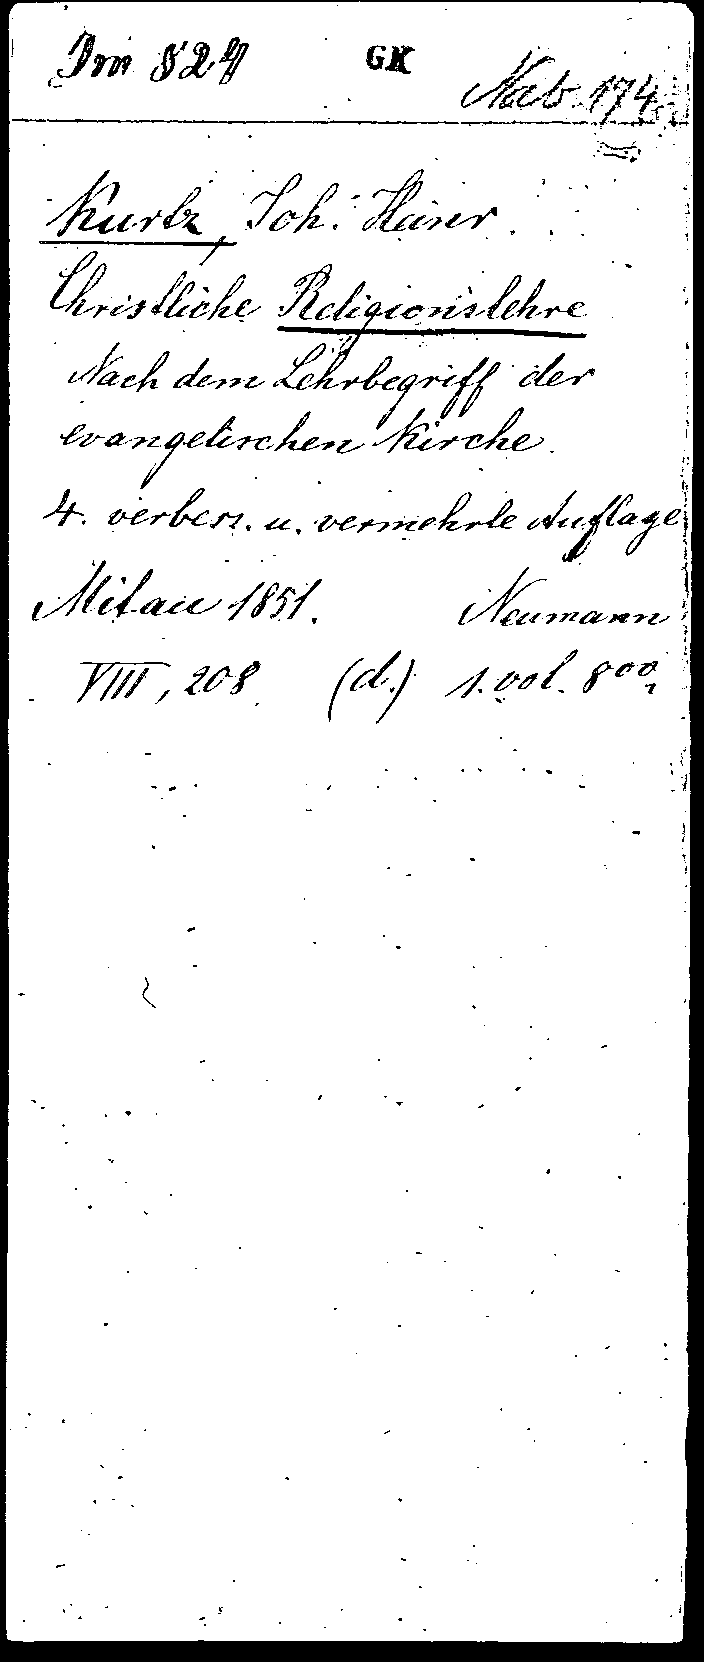 Dm 524 GK Nab. 174
Kurtz, Joh. Heinr.
Christliche Religionslehre
Nach dem Lehrbegriff der
evangelischen Kirche.
4. verbess. u. vermehrte Auflage
Mitau 1851. Neumann
VIII, 208 (d.) 1. vol. 8oo